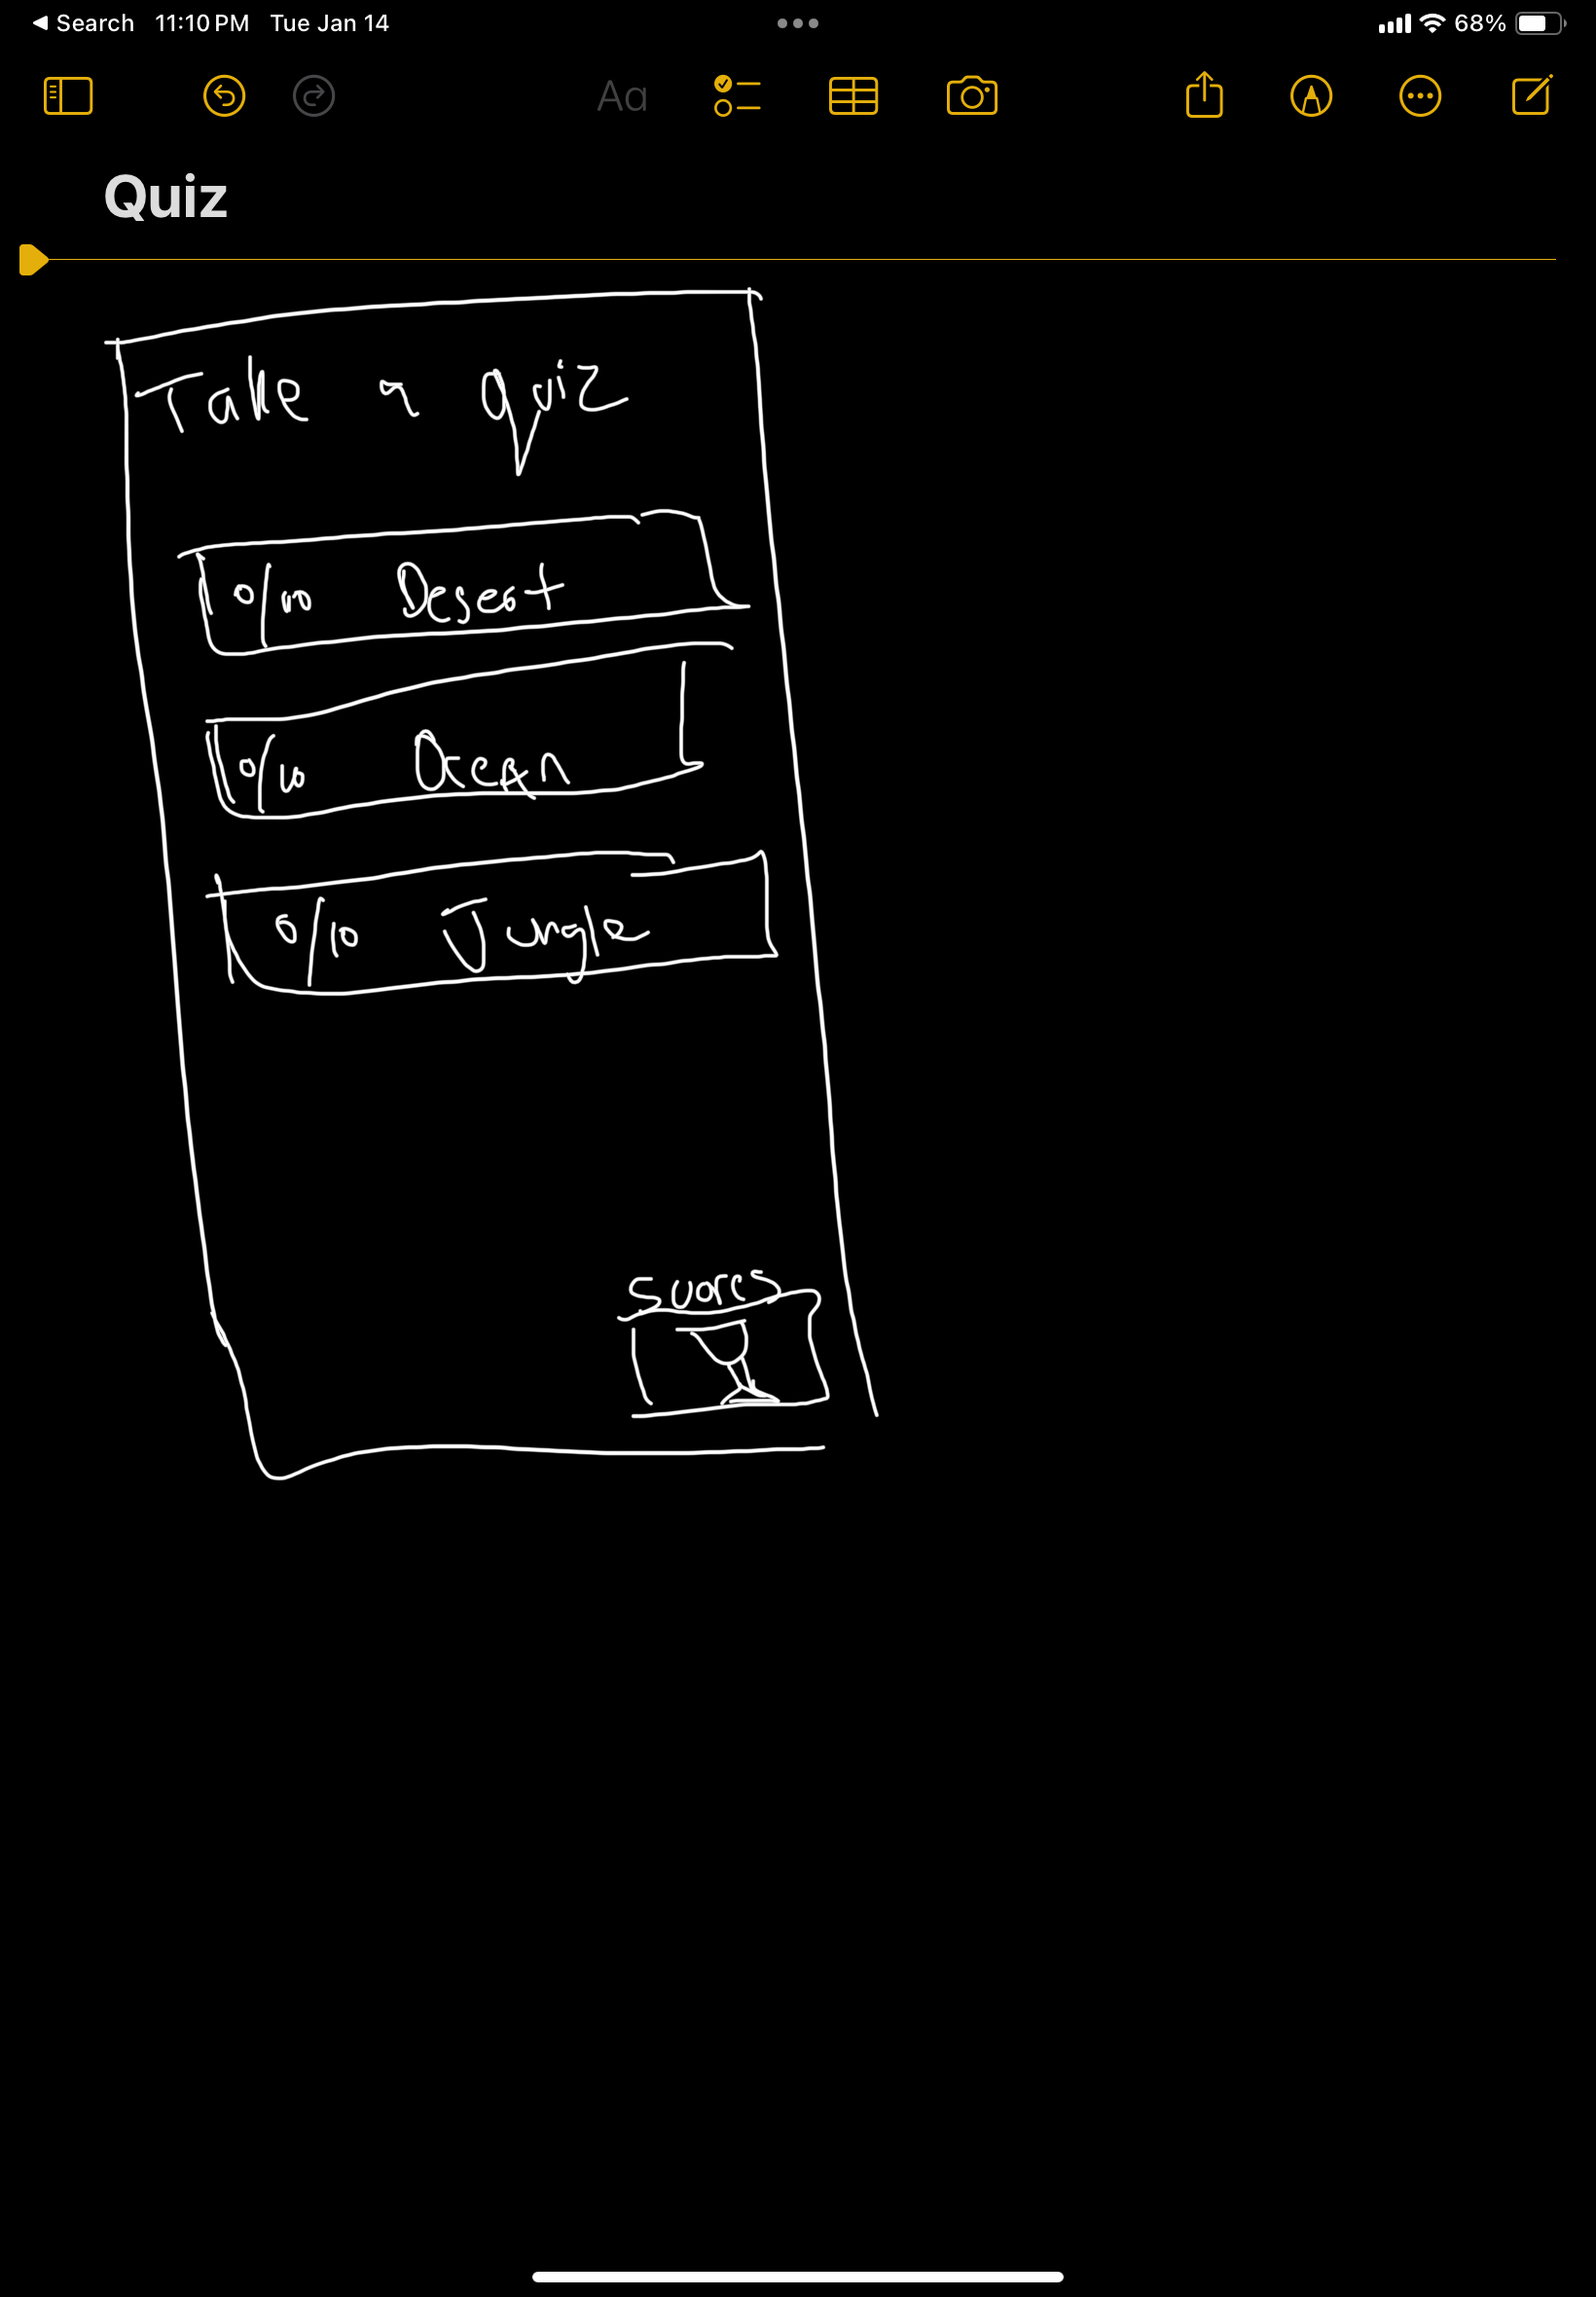 Search 11:10 PM Tue Jan 14
68%
Aa
Quiz
Take a quiz
0/10 Desert
0/10 Ocean
0/10 Jungle
Scores